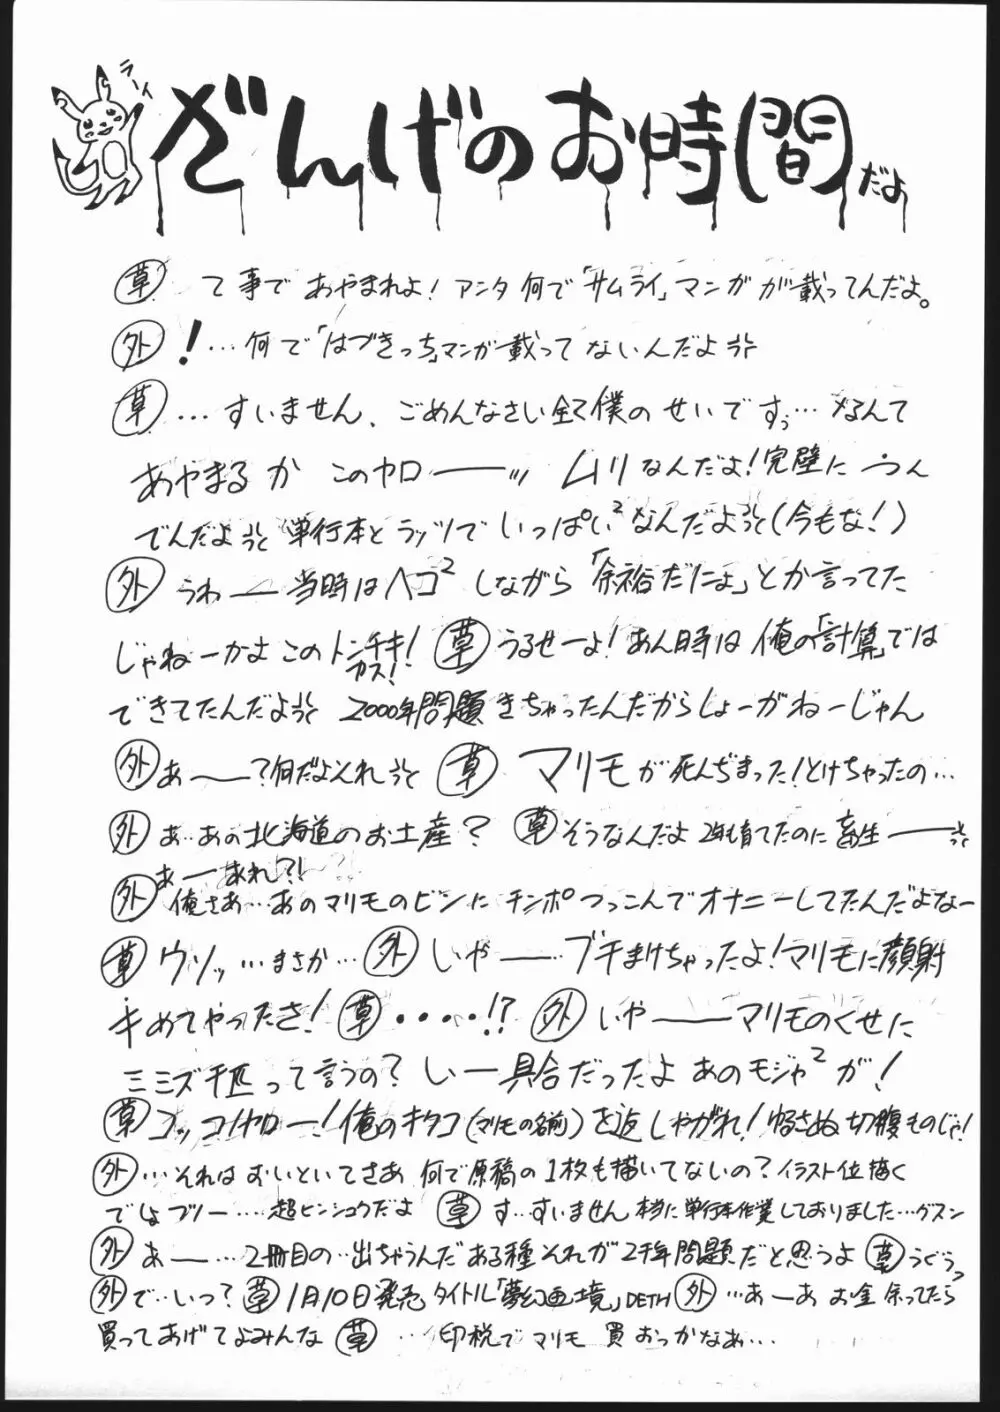 ラーィ
ざんげのお時間だよ
草 て事であやまれよ!アンタ何で「サムライ」マンガが載ってんだよ。
外 !…何で「はづきっち」マンガ載ってないんだよ
草 …すいません、ごめんなさい全て僕のせいですぅ…なんて
あやまるかこのヤローーッ ムリなんだよ!完璧に
でんだよ 単行本とラッツでいっぱい²なんだよ(今もな!)
外 うわー当時はヘコ²しながら「余裕だにょ」とか言ってた
じゃねーかよこのトンチキ!カス! 草 うるせーよ!あん時は俺の「計算」では
できてたんだよ 2000年問題きちゃったんだからしょーがねーじゃん
外 あー?何だよそれ 草 マリモが死んぢまった!とけちゃったの…
外 あ…あの北海道のお土産? 草 そうなんだよ 2年も育てたのに畜生ー
あーあれ?!
外 俺さあ…あのマリモのビンにチンポつっこんでオナニーしてたんだよなー
草 ウソッ…まさか… 外 いやーーブチまけちゃったよ!マリモに顔射
キめてやったさ! 草 ・・・・!? 外 いやーーマリモのくせに
ミミズ千匹って言うの?しー具合だったよあのモジャ²が!
草 コッコノヤロー!俺のキタコ(マリモの名前)を返しやがれ!ゆるさぬ切腹ものじゃ!
外 …それはおいといてさあ 何で原稿の1枚も描いてないの?イラスト位描く
でしょブツー…超ヒンシュクだよ 草 す…すいません 本当に単行本作業しておりました…グスン
外 あー…2冊目の…出ちゃうんだ ある種それが2千年問題だと思うよ 草 うぐぅっ
外 で…いつ? 草 1月10日発売タイトル「夢幻画境」DETH 外 …あーあ お金余ってたら
買ってあげてよみんな 草 …印税でマリモ買おっかなあ…